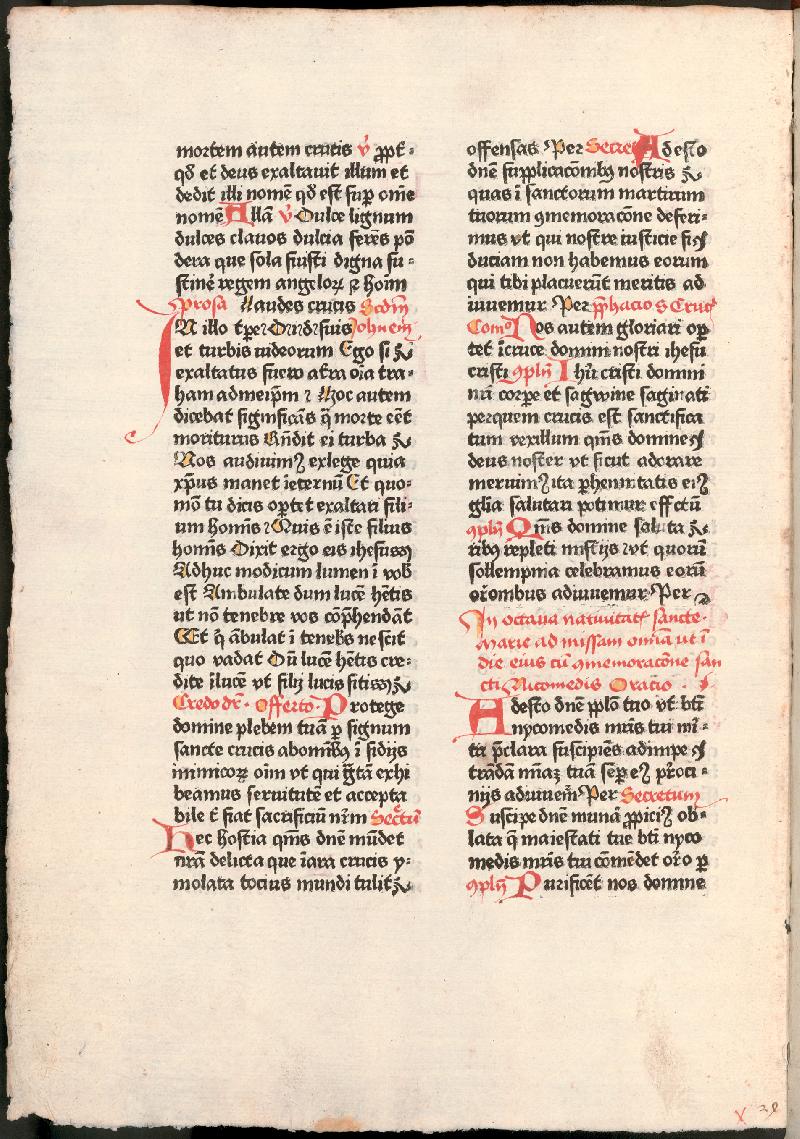 mortem autem crucis v̄ ꝓpt̄·
qđ et deus exaltauit illum et
dedit illi nomē qđ est suꝑ om̄e
nomē Allā v̄ Dulce lignum
dulces clauos dulcia ferēs pō
dera que sola fuisti digna su-
stinē regem angeloꝝ ⁊ hoīm
Prosa Laudes crucis Scđm̄
IN illo tꝑe· Johem̄
et turbis iudeorum Ego si ex
exaltatus fuero at̄ra oīa tra-
ham ad meip̄m ⁊ Hoc autem
dicebat significās q̄ morte eēt
moriturus Rn̄dit ei turba
Nos audiuimꝰ ex lege quia
xp̄us manet īeternū Et quo-
mō tu dicis oꝑtet exaltari fili-
um homīs ⁊ Quis ē iste filius
homīs Dixit ergo eis ihesus
Adhuc modicum lumen ī vob̄
est Ambulate dum lucē hētis
ut nō tenebre vos cōp̄hendāt
Et q̄ ābulat ī teneb̄s nescit
quo vadat Dū lucē hētis cre-
dite īlucē vt filij lucis sitis
Credo· Offerto· Protege
domine plebem tuā ꝑ signum
sancte crucis ab om̄ibꝰ īsidijs
inimicoꝝ oīm vt qui g̃tā exhi
beamus seruitutē et accepta
bile t̄ fiat sacrificiū nr̄m Secretū
Hec hostia q̄ms dnē mūdet
nr̄a delicta que īara crucis y-
molata tocius mundi tulit
offensas Per Secre Adesto
dnē supplicacōnibꝰ nostris
quas ī sanctorum martirum
tuorum ꝯmemoracōne deferi-
mus vt qui nostre iusticie fi
duciam non habemus eorum
qui tibi placuerūt meritis ad
iuuemur Per p̄fhacio s Cruc̄
Com̄o Nos autem gloriari oꝑ
tet īcruce domini nostri ihesu
cristi ꝯpln̄ Ihū cristi domini
nr̄i corpe et sagwine saginati
per quem crucis est sanctifica
tum vexillum q̄ms domine
deus noster vt sicut adorare
meruimꝰ ita ꝑhennitatis eiꝰ
glīa salutari potimur effectū
ꝯpln̄ Q̄ms domine saluta
ribꝰ repleti mist̄ijs vt quorū
sollempnia celebramus eorū
or̄onibus adiuuemur Per
In octaua natiuitatꝭ sancte
Marie ad missam om̄ia ut ī
die eius cū ꝯmemoracōne san
cti Nicomedis Oratio
Adesto dnē pplō tuo vt bt̄i
nycomedis mr̄is tui mi-
ta p̄clara suscipiēs ad impe
trādā mīaꝫ tuā semꝑ eiꝰ p̄oci-
nijs adiuuem̄ Per Secretum
Suscipe dnē munā ꝓpiciꝰ ob-
lata q̄ maiestati tue bt̄i nyco
medis mr̄is tui cōmēdet or̄o ꝑ
ꝯpln̄ Purificēt nos domine